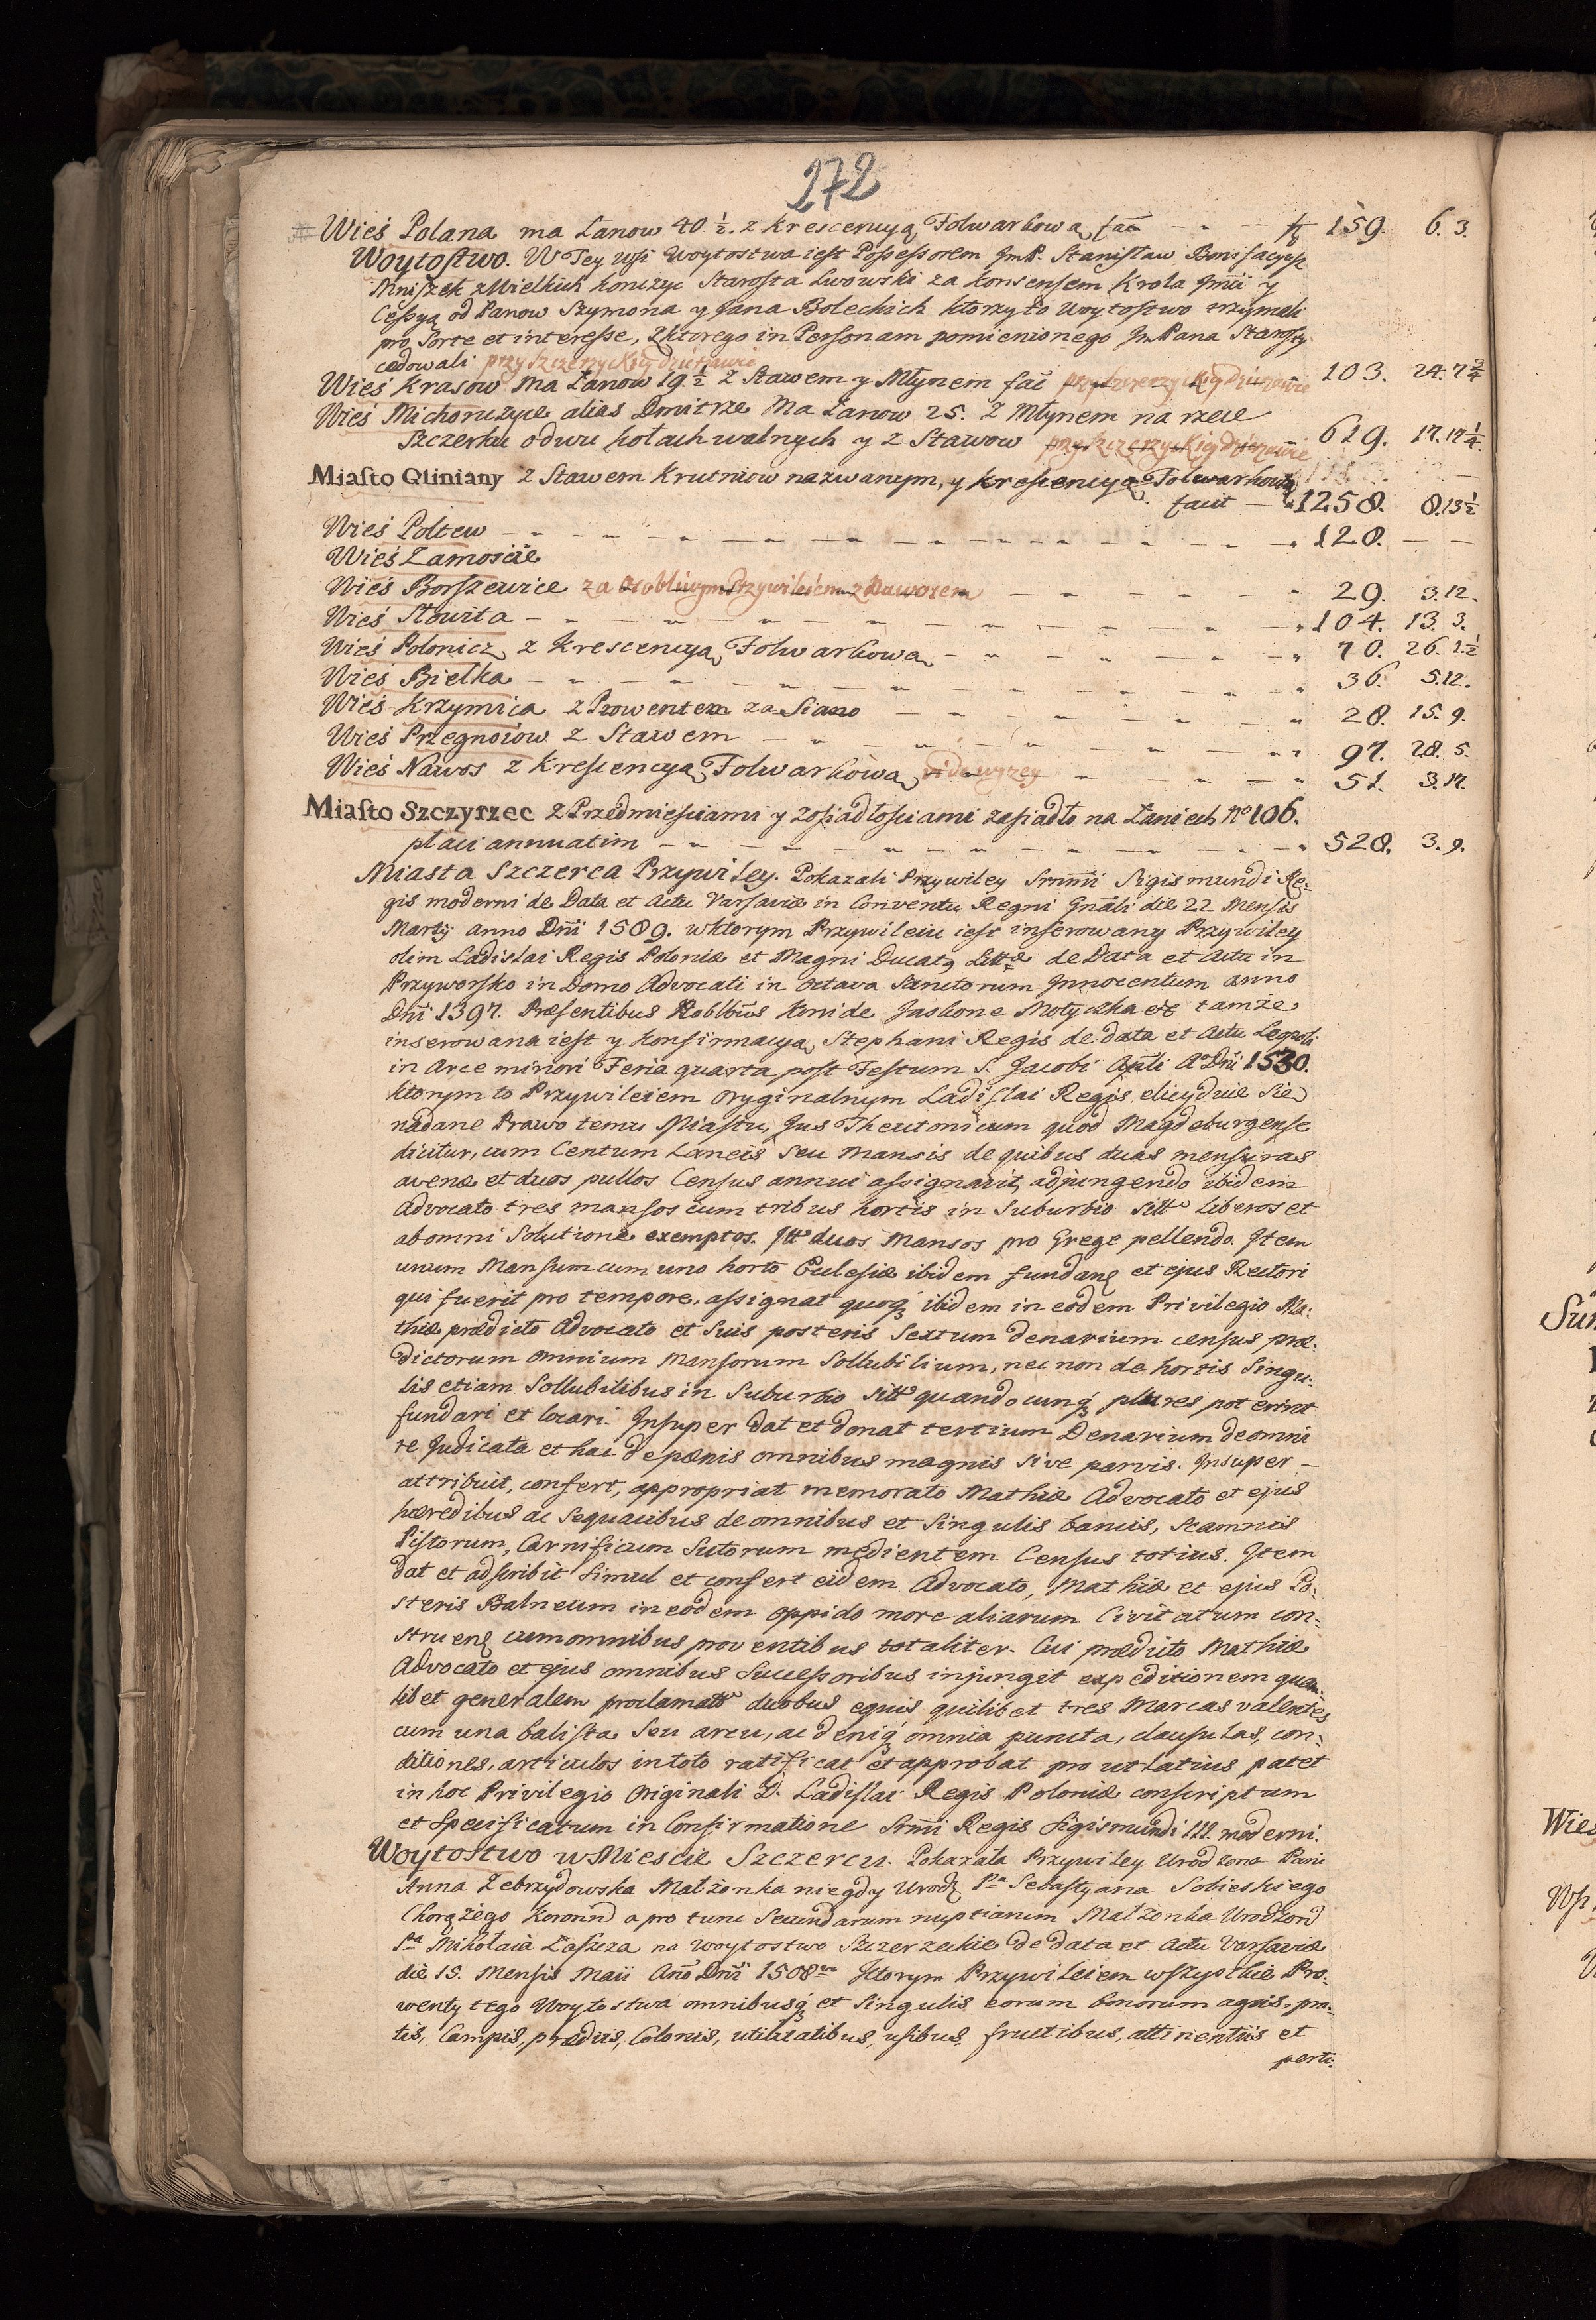 272
Wieś Polana ma Łanow 40 ½. z Krescencyą Folwarkową fac̄ - - - fł 159. 6. 3.
Woytostwo. W Tey wsi Woytostwa iest Possessorem JmP. Stanisław Bonifacyusz
Mniszek z Wielkich Konczyc Starosta Lwowski za Konsensem Krola Jmci y
Cessyą od Panow Szymona y Jana Boleckich ktorzy to Woytostwo trzymali
pro Sorte et interesse, z ktorego in Personam pomienionego JmPana Starosty
cedowali przy Szczerzyckiey dzierżawie
Wieś Krasow ma Łanow 19. ½ z Stawem y Młynem fac̄ przy Szczerzyckiey dzierzawie 103. 24. 7 ¾
Wieś Michonczyce alias Dmitrze ma Łanow 25. z Młynem na rzece
Szczerku o dwu kołach walnych y z Stawow przy Szczerzyckiey dzierzawie 619. 17. 17 ¼
Miasto Gliniany z Stawem Krutniow nazwanym, y Krescencyą Folwarkową
facit - 1258. 8. 13 ½
Wieś Połtew - - - 120. - -
Wieś Zamoscie
Wieś Borszewice za osobliwym Przywileiem z Nawosem - - - 29. 3. 12.
Wieś Słowita - - - 104. 13. 3.
Wieś Polonicz z Krescencyą Folwarkową - - - 70. 26. 1. ½
Wieś Bielka - - - 36. 5. 12.
Wieś Krzywica z Prowentem za Siano - - - 28. 15. 9.
Wieś Przegnoiow z Stawem - - - 97. 28. 5.
Wieś Nawos z Krescencyą Folwarkową vide wyzey - - - 51. 3. 17.
Miasto Szczyrzec z Przedmiesciami y Zosiadłosciami zasiadło na Łaniech No 106.
płaci annuatim - - - 528. 3. 9.
Miasta Szczerca Przywiley. Pokazali Przywiley Srm̄i Sigismundi Re-
gis moderni de Data et Actu Varsaviæ in Conventu Regni Gnāli die 22 Mensis
Martij anno Dn̄i 1589. w ktorym Przywileiu iest inserowany Przywiley
olim Ladislai Regis Poloniæ et Magni Ducatq Littæ de Data et Actu in
Przyworsko in Domo Advocati in Octava Sanctorum Innocentum anno
Dn̄i 1397. Præsentibus Noblb̄us Koni de Jaskone Motyczka etc tamże
inserowana iest y Konfirmacya Stephani Regis de data et Actu Leopoli
in Arce minori Feria quarta post Festum S. Jacobi Apl̄i Ao Dn̄i 1530.
ktorym to Przywileiem Oryginalnym Ladislai Regis elicyduie Się
nadane Prawo temu Miastu, Jus Theutonicum quod Magdeburgense
dicitur, cum Centum Laneis seu Mansis de quibus duas mensuras
avenæ et duos pullos Census annui assignavit, adjungendo ibidem
Advocato tres mansos cum tribus hortis in Suburbio sitto Liberos et
ab omni Solutione exemptos. Itt duos Mansos pro Grege pellendo. Item
unum Mansum cum uno horto Eclesiæ ibidem fundanę et ejus Rectori
qui fuerit pro tempore, assignat quoq3 ibidem in eodem Privilegio Ma-
thiæ prædicto Advocato et Suis posteris Sextum denarium census præ-
dictorum omnium Mansorum Sollubilium, nec non de hortis Singu-
lis etiam Sollubilibus in Suburbio sitto quandocunq3 plures poterint
fundari et locari. Insuper dat et donat tertium Denarium de omni
re Judicata et hac de pænis omnibus magnis sive parvis. Insuper -
attribuit, confert, appropriat memorato Mathiæ Advocato et ejus
hæredibus ac Sequacibus de omnibus et Singulis bancis, scamnis
Pistorum, Carnificum Sutorum medientem Census totius. Item
dat et adscribit simul et confert eidem Advocato, Mathiæ et ejus Po-
steris Balneum in eodem oppido more aliarum Civitatum con-
struenę cum omnibus proventibus totaliter. Cui prædicto Mathiæ
Advocato et ejus omnibus Successoribus injungit expeditionem quam-
libet generalem proclamatto duobus equis quilibet tres Marcas valentes
cum una balista Seu arcu, ac deniq3 omnia puncta, clausulas, con-
ditiones, articulos in toto ratificat et approbat pro ut Latius patet
in hoc Privilegio Originali D. Ladislai Regis Poloniæ conscriptum
et Specificatum in Confirmatione Srm̄i Regis Sigismundi III. moderni.
Woytostwo w Miescie Szczercu. Pokazała Przywiley Urodzona Pani
Anna Zebrzydowska Małżonka niegdy Urodz Pa Sebastyana Sobieskiego
Chorążego Koronn̄ a pro tunc Secundarum nuptiarum Małżonka Urodzon̄
Pa Mikołaia Łaszcza na Woytostwo Szczerzeckie de data et Actu Varsaviæ
die 15. Mensis Maii Ano Dn̄i 1508vo Ktorym Przywileiem wszystkie Pro-
wenty tego Woytostwa omnibusq3 et Singulis eorum bonorum agris, pra-
tis, Campis, prædiis, Colonis, utilitatibus, usibus, fructibus, attinentiis et
perti-